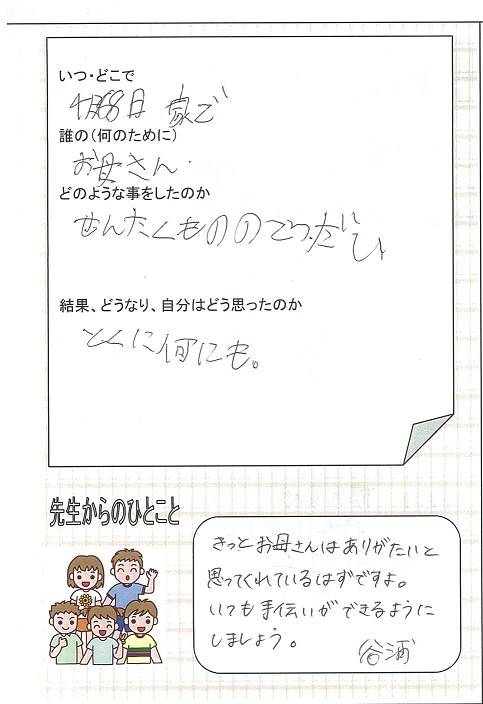 いつ・どこで
家で
誰の(何のために)
お母さん
どのような事をしたのか
せんたくもののてつだい
結果、どうなり、自分はどう思ったのか
とくに何にも。
先生からのひとこと
きっとお母さんはありがたいと
思ってくれているはずですよ。
いつも手伝いができるように
しましょう。